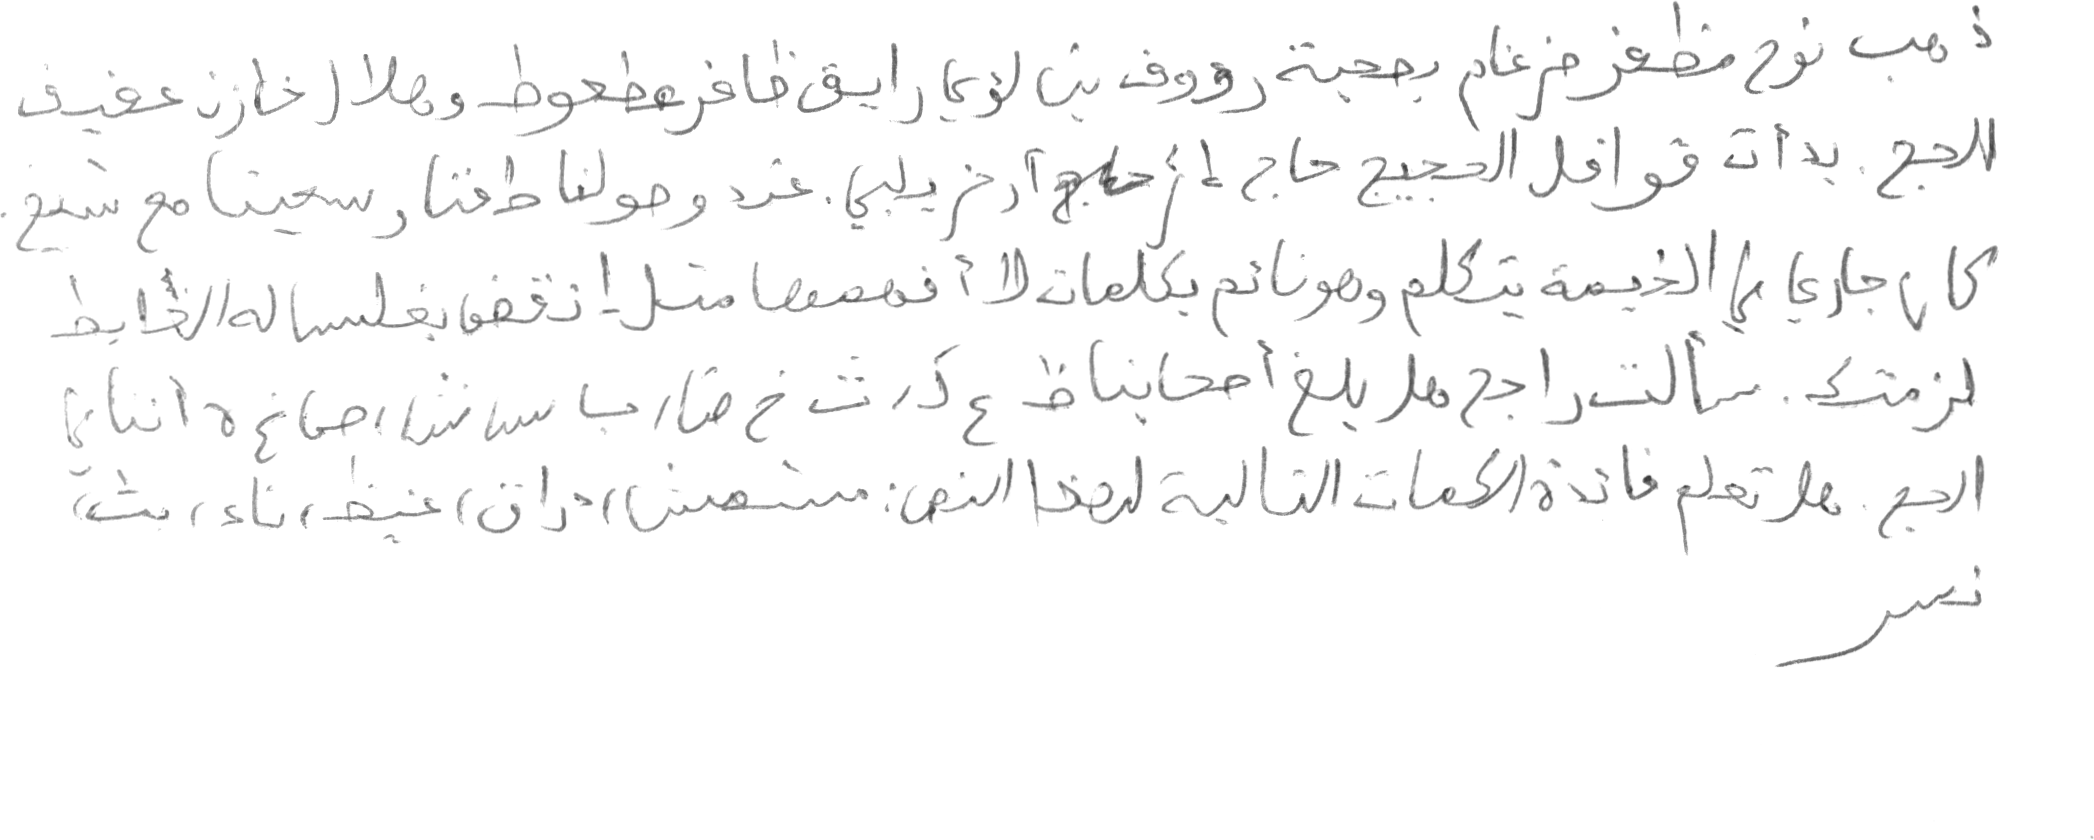 ذهب نوح مظفر ضرغام بصحبة رؤوف بن لؤي رايق ظافر عطعوط وهلال خازن عفيف
للحج. بدأت قوافل الحجيج حاج إثر حاج آخر يلبي. عند وصولنا طفنا وسعينا مع شيخ.
كان جاري في الخيمة يتكلم وهو نائم بكلمات لا أفهمها مثل انقض بغلسا له الضابط
لزمتك. سألت راجح هل بلغ أصحابنا ظ ع ذ، ث خ ض، ب س ش، صاغ ه اننا في
الحج. هل تعلم فائدة الكلمات التالية لهذا النص: مشمش، دراق، غيظ، ناء، بث،
نسر